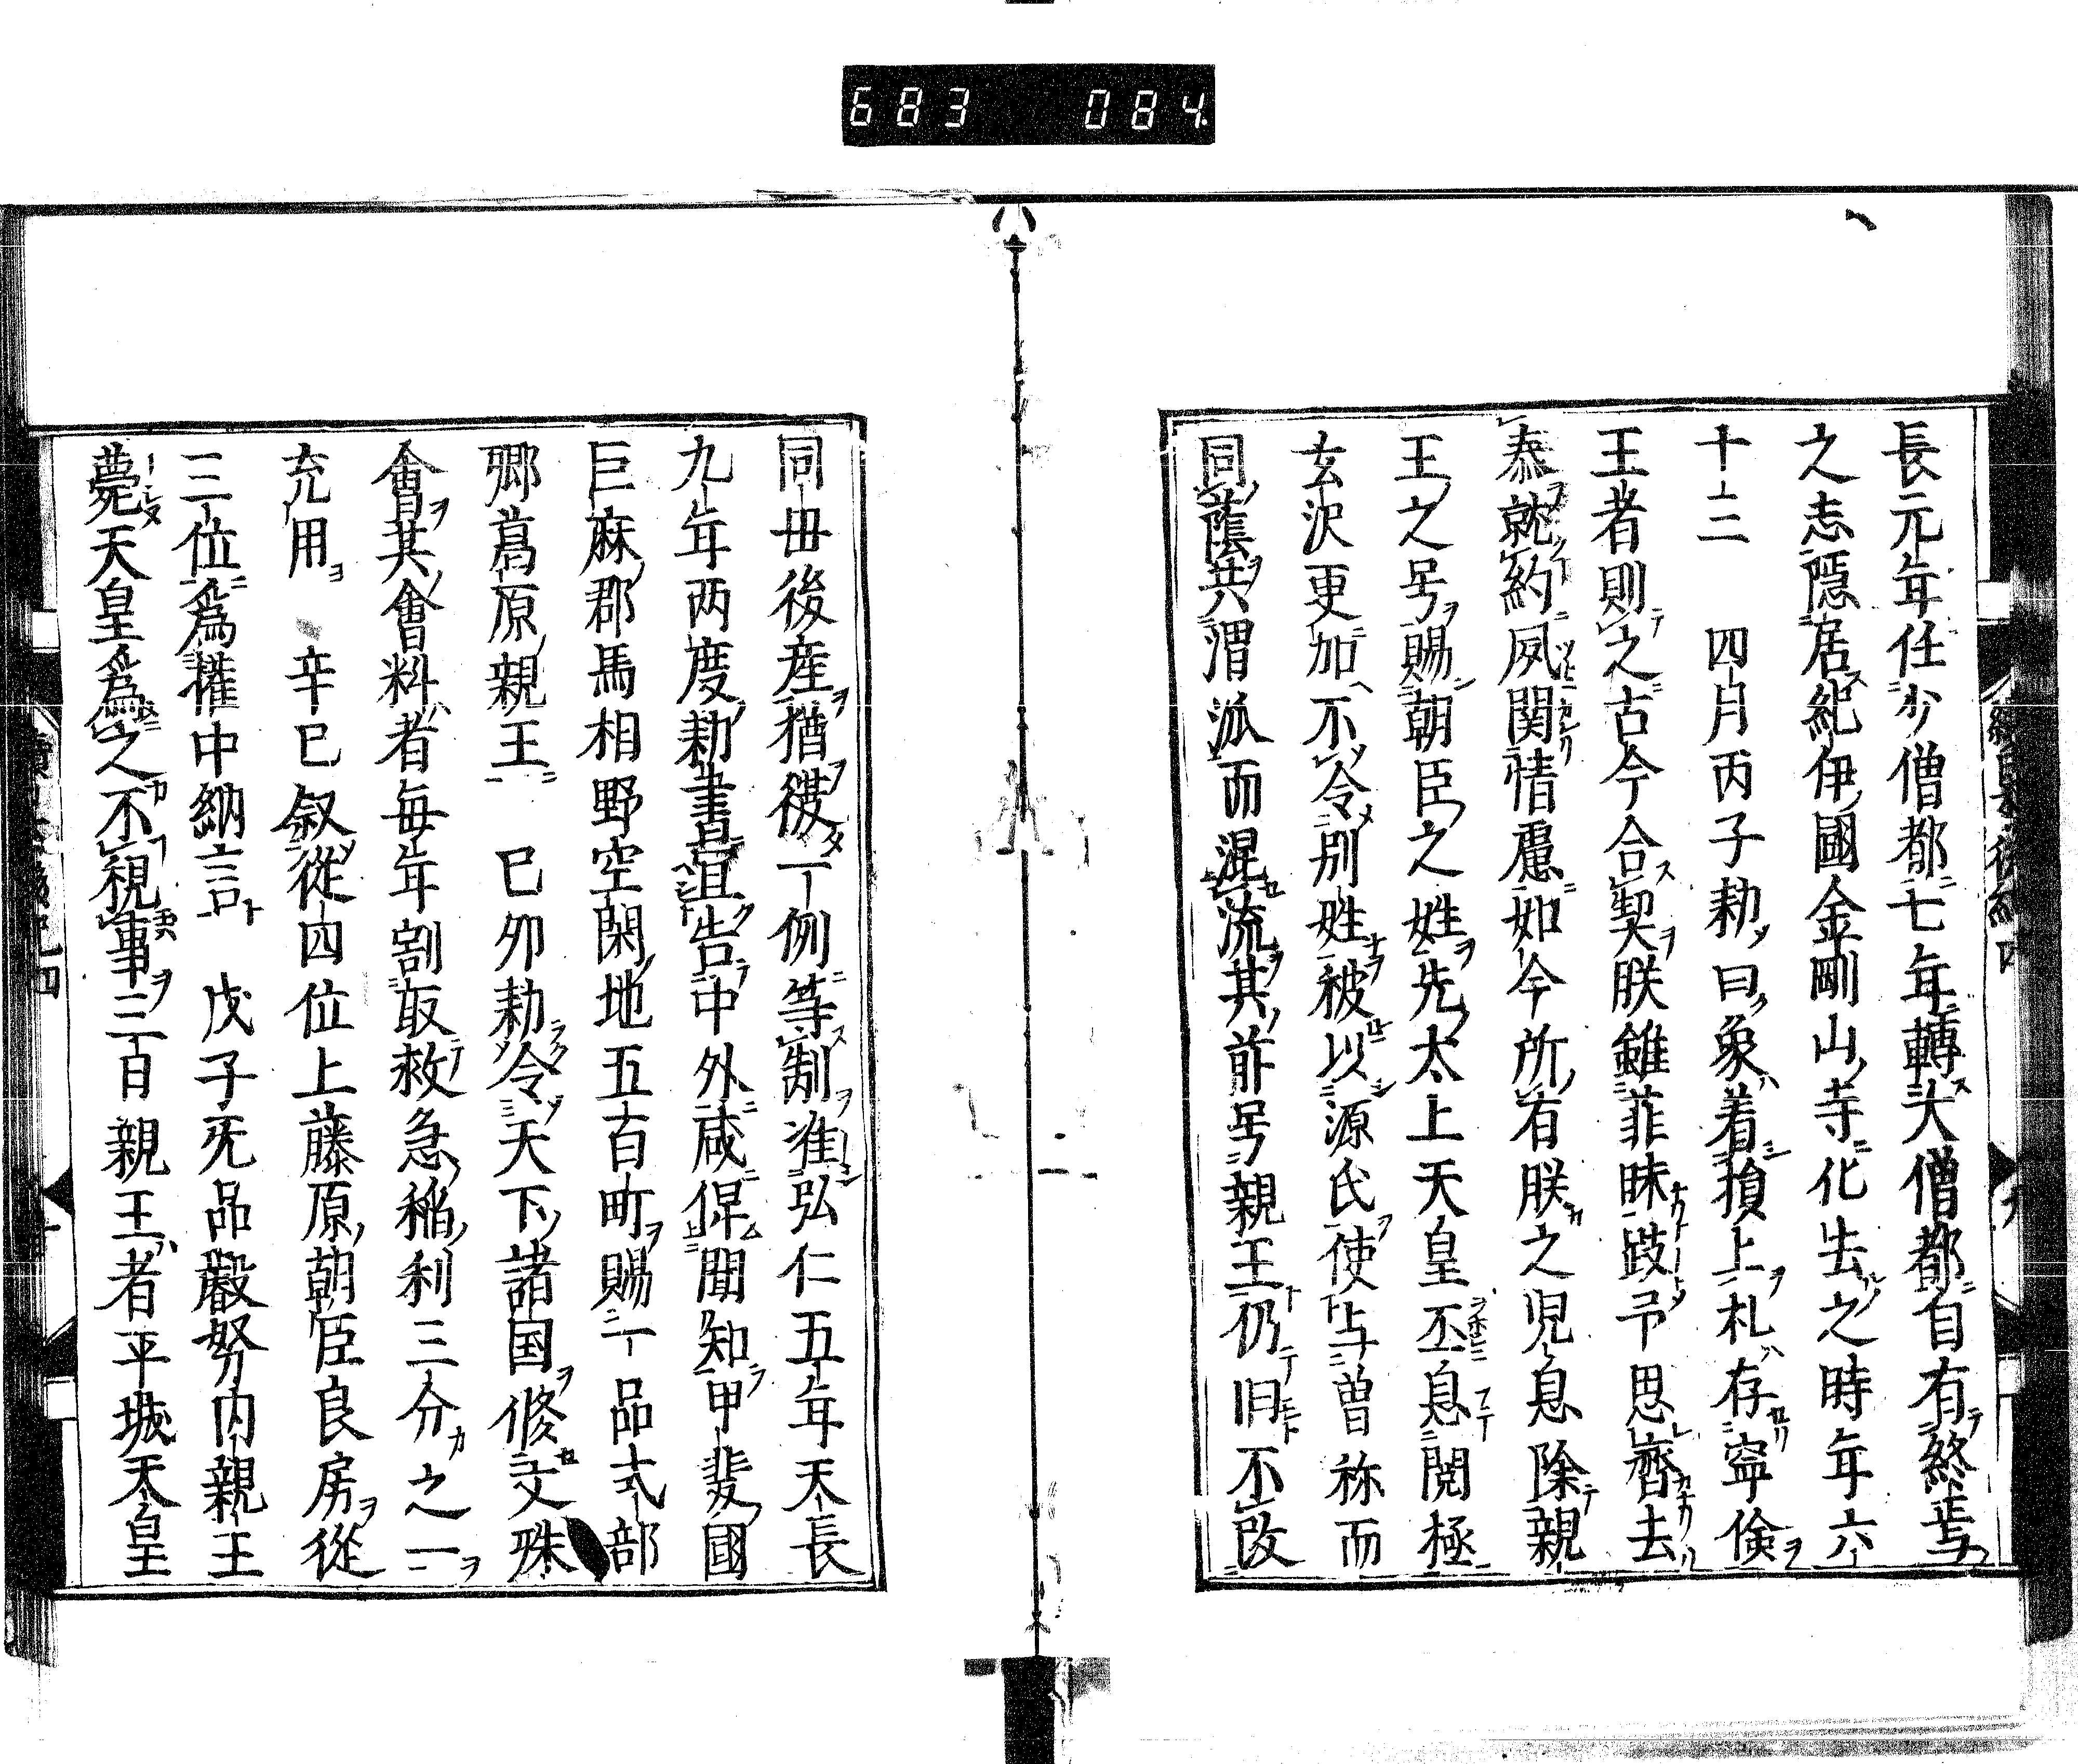 683 084
長元年任少僧都七年轉大僧都自有終焉
之志隱居紀伊國金剛山寺化去之時年六
十二 四月丙子勅曰象着損上札存寧倹
王者則之古今合契朕雖菲昧跂予思齊去
泰就約夙関情慮如今所有朕之児息除親
王之号賜朝臣之姓先太上天皇丕息閲極
玄沢更加不令別姓被以源氏使与曽祢而
同蔭共渭派而混流其前号親王仍旧不改
同毋後産猶彼一例等制准弘仁五年天長
九年两度勅書宣告中外咸俾聞知甲斐國
巨麻郡馬相野空閑地五百町賜一品式部
卿葛原親王 巳夘勅令天下諸国修文殊
會其會料者毎年割取救急稲利三分之一
充用 辛巳叙從四位上藤原朝臣良房從
三位為權中納言 戊子旡品巖努内親王
薨天皇為之不視事三百親王者平城天皇